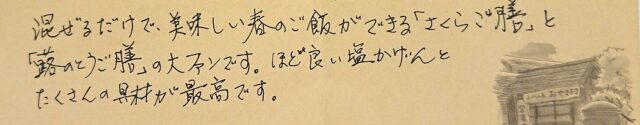 混ぜるだけで、美味しい春のご飯ができる「さくらご膳」と
「蕗のとうご膳」の大ファンです。ほど良い塩かげんと
たくさんの具材が最高です。